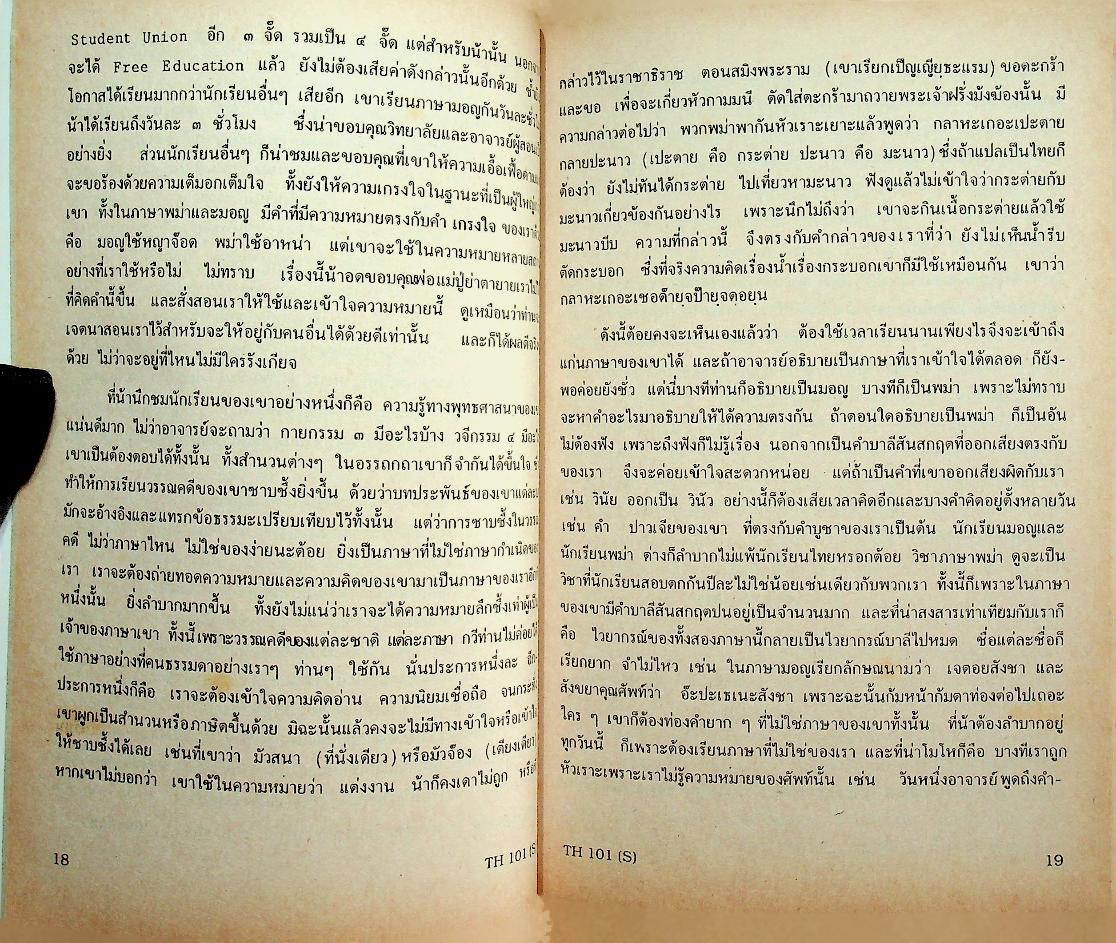 Student Union อีก ๓ จั๊ด รวมเป็น ๔ จั๊ด แต่สำหรับน้านั้น
จะได้ Free Education แล้ว ยังไม่ต้องเสียค่าดังกล่าวนั้นอีกด้วย
โอกาสได้เรียนมากกว่านักเรียนอื่นๆ เสียอีก เขาเรียนภาษามอญกันวันละ
น้าได้เรียนถึงวันละ ๓ ชั่วโมง ซึ่งน่าขอบคุณวิทยาลัยและอาจารย์ผู้สอน
อย่างยิ่ง ส่วนนักเรียนอื่นๆ ก็น่าชมและขอบคุณที่เขาให้ความเอื้อเฟื้อ
จะขอร้องด้วยความเต็มอกเต็มใจ ทั้งยังให้ความเกรงใจในฐานะที่เป็นผู้ใหญ่
เขา ทั้งในภาษาพม่าและมอญ มีคำที่มีความหมายตรงกับคำ เกรงใจ ของเรา
คือ มอญใช้หญาจ๊อด พม่าใช้อาหน่า แต่เขาจะใช้ในความหมายหลาย
อย่างที่เราใช้หรือไม่ ไม่ทราบ เรื่องนี้น้าอดขอบคุณพ่อแม่ปู่ย่าตายายเรา
ที่คิดคำนี้ขึ้น และสั่งสอนเราให้ใช้และเข้าใจความหมายนี้ ดูเหมือนว่าท่าน
เจตนาสอนเราไว้สำหรับจะให้อยู่กับคนอื่นได้ด้วยดีเท่านั้น และก็ได้ผลดีจริง
ด้วย ไม่ว่าจะอยู่ที่ไหนไม่มีใครรังเกียจ
ที่น้านึกชมนักเรียนของเขาอย่างหนึ่งก็คือ ความรู้ทางพุทธศาสนาของ
แน่นดีมาก ไม่ว่าอาจารย์จะถามว่า กายกรรม ๓ มีอะไรบ้าง วจีกรรม ๔ มี
เขาเป็นต้องตอบได้ทั้งนั้น ทั้งสำนวนต่างๆ ในอรรถกถาเขาก็จำกันได้ขึ้นใจ
ทำให้การเรียนวรรณคดีของเขาซาบซึ้งยิ่งขึ้น ด้วยว่าบทประพันธ์ของเขาแต่ละ
มักจะอ้างอิงและแทรกข้อธรรมะเปรียบเทียบไว้ทั้งนั้น แต่ว่าการซาบซึ้งใน
คดี ไม่ว่าภาษาไหน ไม่ใช่ของง่ายนะต้อย ยิ่งเป็นภาษาที่ไม่ใช่ภาษากำเนิดของ
เรา เราจะต้องถ่ายทอดความหมายและความคิดของเขามาเป็นภาษาของเราอีก
หนึ่งนั้น ยิ่งลำบากมากขึ้น ทั้งยังไม่แน่ว่าเราจะได้ความหมายลึกซึ้งเท่าผู้เป็น
เจ้าของภาษาเขา ทั้งนี้เพราะวรรณคดีของแต่ละชาติ แต่ละภาษา กวีท่านไม่ค่อยได้
ใช้ภาษาอย่างที่คนธรรมดาอย่างเราๆ ท่านๆ ใช้กัน นั่นประการหนึ่งละ อีก-
ประการหนึ่งก็คือ เราจะต้องเข้าใจความคิดอ่าน ความนิยมเชื่อถือ จนกระทั่ง
เขาผูกเป็นสำนวนหรือภาษิตขึ้นด้วย มิฉะนั้นแล้วคงจะไม่มีทางเข้าใจหรือเข้า
ให้ซาบซึ้งได้เลย เช่นที่เขาว่า มัวสนา (ที่นั่งเดียว) หรือมัวจ็อง (เตียงเดียว)
หากเขาไม่บอกว่า เขาใช้ในความหมายว่า แต่งงาน น้าก็คงเดาไม่ถูก หรือ
18
TH 101 (S
กล่าวไว้ในราชาธิราช ตอนสมิงพระราม (เขาเรียกเป็ญเญียุธะแรม) ขอตะกร้า
และขอ เพื่อจะเกี่ยวหัวกามมนี ตัดใส่ตะกร้ามาถวายพระเจ้าฝรั่งมังฆ้องนั้น มี
ความกล่าวต่อไปว่า พวกพม่าพากันหัวเราะเยาะแล้วพูดว่า กลาหะเกอะเปะตาย
กลายปะนาว (เปะตาย คือ กระต่าย ปะนาว คือ มะนาว) ซึ่งถ้าแปลเป็นไทยก็
ต้องว่า ยังไม่ทันได้กระต่าย ไปเที่ยวหามะนาว ฟังดูแล้วไม่เข้าใจว่ากระต่ายกับ
มะนาวเกี่ยวข้องกันอย่างไร เพราะนึกไม่ถึงว่า เขาจะกินเนื้อกระต่ายแล้วใช้
มะนาวบีบ ความที่กล่าวนี้ จึงตรงกับคำกล่าวของเราที่ว่า ยังไม่เห็นน้ำรีบ
ตัดกระบอก ซึ่งที่จริงความคิดเรื่องน้ำเรื่องกระบอกเขาก็มีใช้เหมือนกัน เขาว่า
กลาหะเกอะเชอด๊ายฺจป๊ายฺจดฺอยฺน
ดังนี้ต้อยคงจะเห็นเองแล้วว่า ต้องใช้เวลาเรียนนานเพียงไรจึงจะเข้าถึง
แก่นภาษาของเขาได้ และถ้าอาจารย์อธิบายเป็นภาษาที่เราเข้าใจได้ตลอด ก็ยัง-
พอค่อยยังชั่ว แต่นี่บางทีท่านก็อธิบายเป็นมอญ บางทีก็เป็นพม่า เพราะไม่ทราบ
จะหาคำอะไรมาอธิบายให้ได้ความตรงกัน ถ้าตอนใดอธิบายเป็นพม่า ก็เป็นอัน
ไม่ต้องฟัง เพราะถึงฟังก็ไม่รู้เรื่อง นอกจากเป็นคำบาลีสันสกฤตที่ออกเสียงตรงกับ
ของเรา จึงจะค่อยเข้าใจสะดวกหน่อย แต่ถ้าเป็นคำที่เขาออกเสียงผิดกับเรา
เช่น วินัย ออกเป็น วินัว อย่างนี้ก็ต้องเสียเวลาคิดอีกและบางคำคิดอยู่ตั้งหลายวัน
เช่น คำ ปาวเจียของเขา ที่ตรงกับคำบูชาของเราเป็นต้น นักเรียนมอญและ
นักเรียนพม่า ต่างก็ลำบากไม่แพ้นักเรียนไทยหรอกต้อย วิชาภาษาพม่า ดูจะเป็น
วิชาที่นักเรียนสอบตกกันปีละไม่ใช่น้อยเช่นเดียวกับพวกเรา ทั้งนี้ก็เพราะในภาษา
ของเขามีคำบาลีสันสกฤตปนอยู่เป็นจำนวนมาก และที่น่าสงสารเท่าเทียมกับเราก็
คือ ไวยากรณ์ของทั้งสองภาษานี้กลายเป็นไวยากรณ์บาลีไปหมด ชื่อแต่ละชื่อก็
เรียกยาก จำไม่ไหว เช่น ในภาษามอญเรียกลักษณนามว่า เจตอยสังชา และ
สังขยาคุณศัพท์ว่า อ๊ะปะเธเนะสังชา เพราะฉะนั้นก้มหน้าก้มตาท่องต่อไปเถอะ
ใคร ๆ เขาก็ต้องท่องคำยาก ๆ ที่ไม่ใช่ภาษาของเขาทั้งนั้น ที่น้าต้องลำบากอยู่
ทุกวันนี้ ก็เพราะต้องเรียนภาษาที่ไม่ใช่ของเรา และที่น่าโมโหก็คือ บางทีเราถูก
หัวเราะเพราะเราไม่รู้ความหมายของศัพท์นั้น เช่น วันหนึ่งอาจารย์พูดถึงคำ-
TH 101 (S)
19